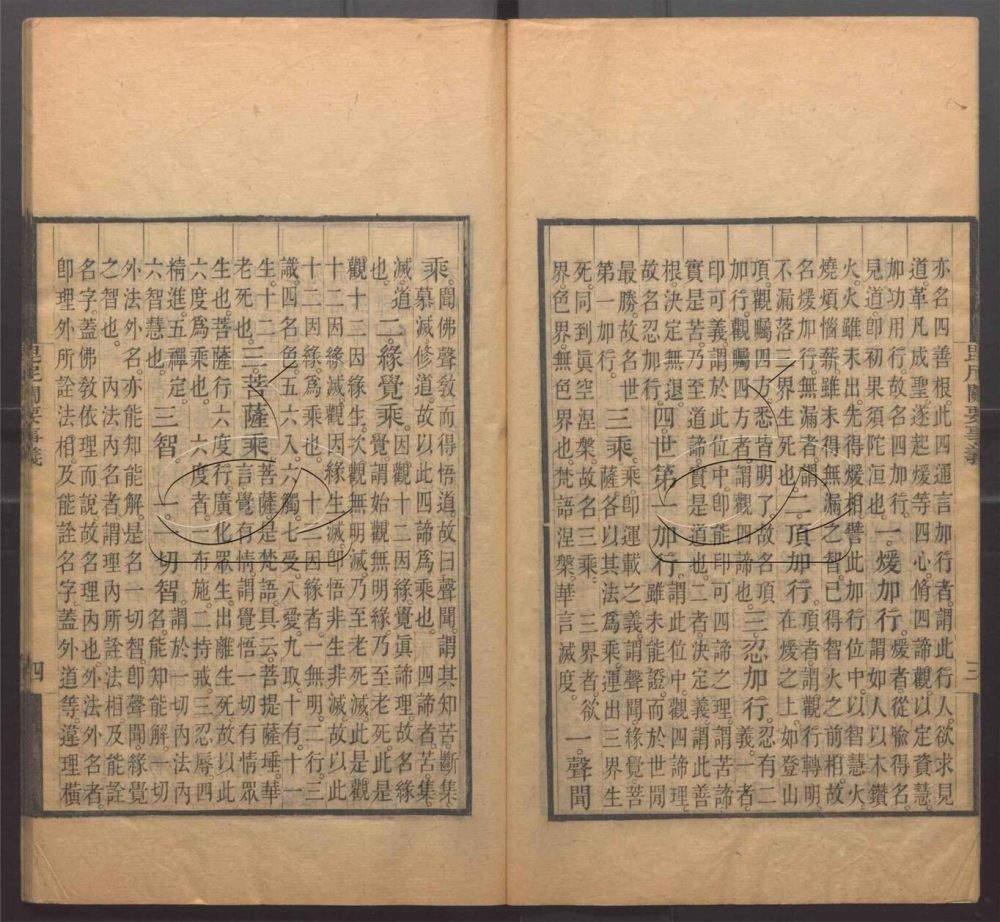 亦名四善根此四通言加行者謂此行人欲求見
道革凡成聖遂起煖等四心脩四諦觀以定資慧
加功用行故名四加行。
見道即初果須陀洹也。
一煖加行。
煖者從喻得名。
謂如人以木鑽
火火雖未出先得煖相譬此加行位中以智慧火
燒煩惱薪雖未得無漏之智已得智火之前相故
名煖加行無漏者謂
不漏落三界生死也。
二頂加行。
頂者謂觀行轉明。
在煖之上如登山
頂觀矚四方悉皆明了故名頂
加行觀矚四方者謂觀四諦也。
三忍加行。
忍有二
義一者
印可義謂於此位中即能印可四諦之理謂苦諦
實是苦乃至道諦實是道也二者決定義謂此善
根決定無退。
故名忍加行。
四世第一加行。
謂此位中觀四諦理。
雖未能證而於世間
最勝故名世
第一加行。
三乘。
乘即運載之義謂聲聞緣覺菩
薩各以其法爲乘運出三界生
死同到眞空涅槃故名三乘三界者欲
界色界無色界也梵語涅槃華言滅度。
一聲聞
三
乘。
聞佛聲教而得悟道故曰聲聞謂其知苦斷集
慕滅修道故以此四諦爲乘也四諦者苦集
滅道
也。
二緣覺乘。
因觀十二因緣覺眞諦理故名緣
覺謂始觀無明緣乃至老死此是
觀十二因緣生次觀無明滅乃至老死滅此是觀
十二因緣滅觀因緣生滅即悟非生非滅故以此
十二因緣爲乘也十二因緣者一無明二行三
識四名色五六入六觸七受八愛九取十有十一
生十二
老死也。
三菩薩乘。
菩薩是梵語具云菩提薩埵華
言覺有情謂覺悟一切有情眾
生也菩薩行六度行廣化眾生出離生死故以此
六度爲乘也六度者一布施二持戒三忍辱四
精進五禪定。
六智慧也。
三智。
一一切智。
謂於一切內法內
名能知能解一切
外法外名亦能知能解是名一切智即聲聞緣覺
之智也內法內名者謂理內所詮法相及能詮
名字蓋佛教依理而說故名理內也外法外名者
即理外所詮法相及能詮名字蓋外道等違理橫
四